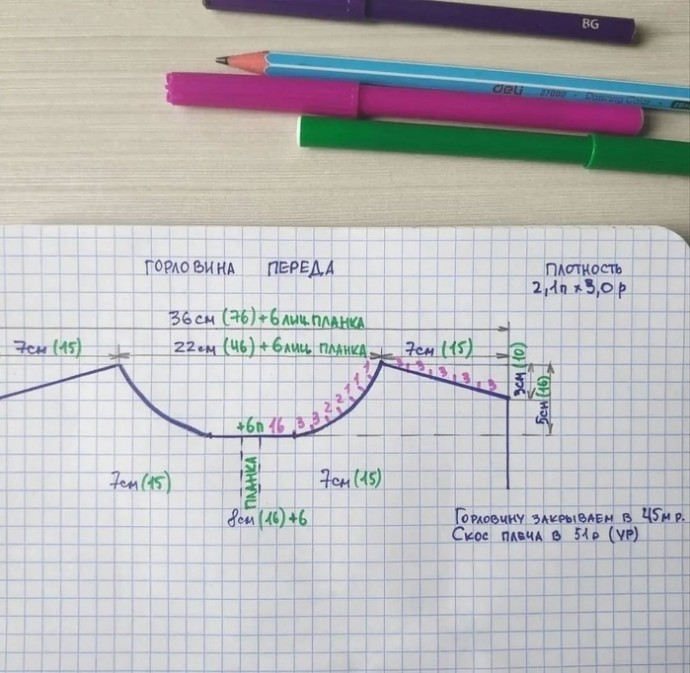 BG
deli
ГОРЛОВИНА ПЕРЕДА
ПЛОТНОСТЬ
2,1п × 3,0 р
36см (76) + 6 лиц ПЛАНКА
7см (15)
22см (46) + 6 лиц ПЛАНКА
7см (15)
3см (10)
5см (16)
3, 3, 3, 3, 3
+6п 16 3, 3, 2, 2, 1, 1, 1
ПЛАНКА
7см (15)
7см (15)
8см (16) + 6
ГОРЛОВИНУ ЗАКРЫВАЕМ В 45м р.
СКОС ПЛЕЧА В 51р (УР)